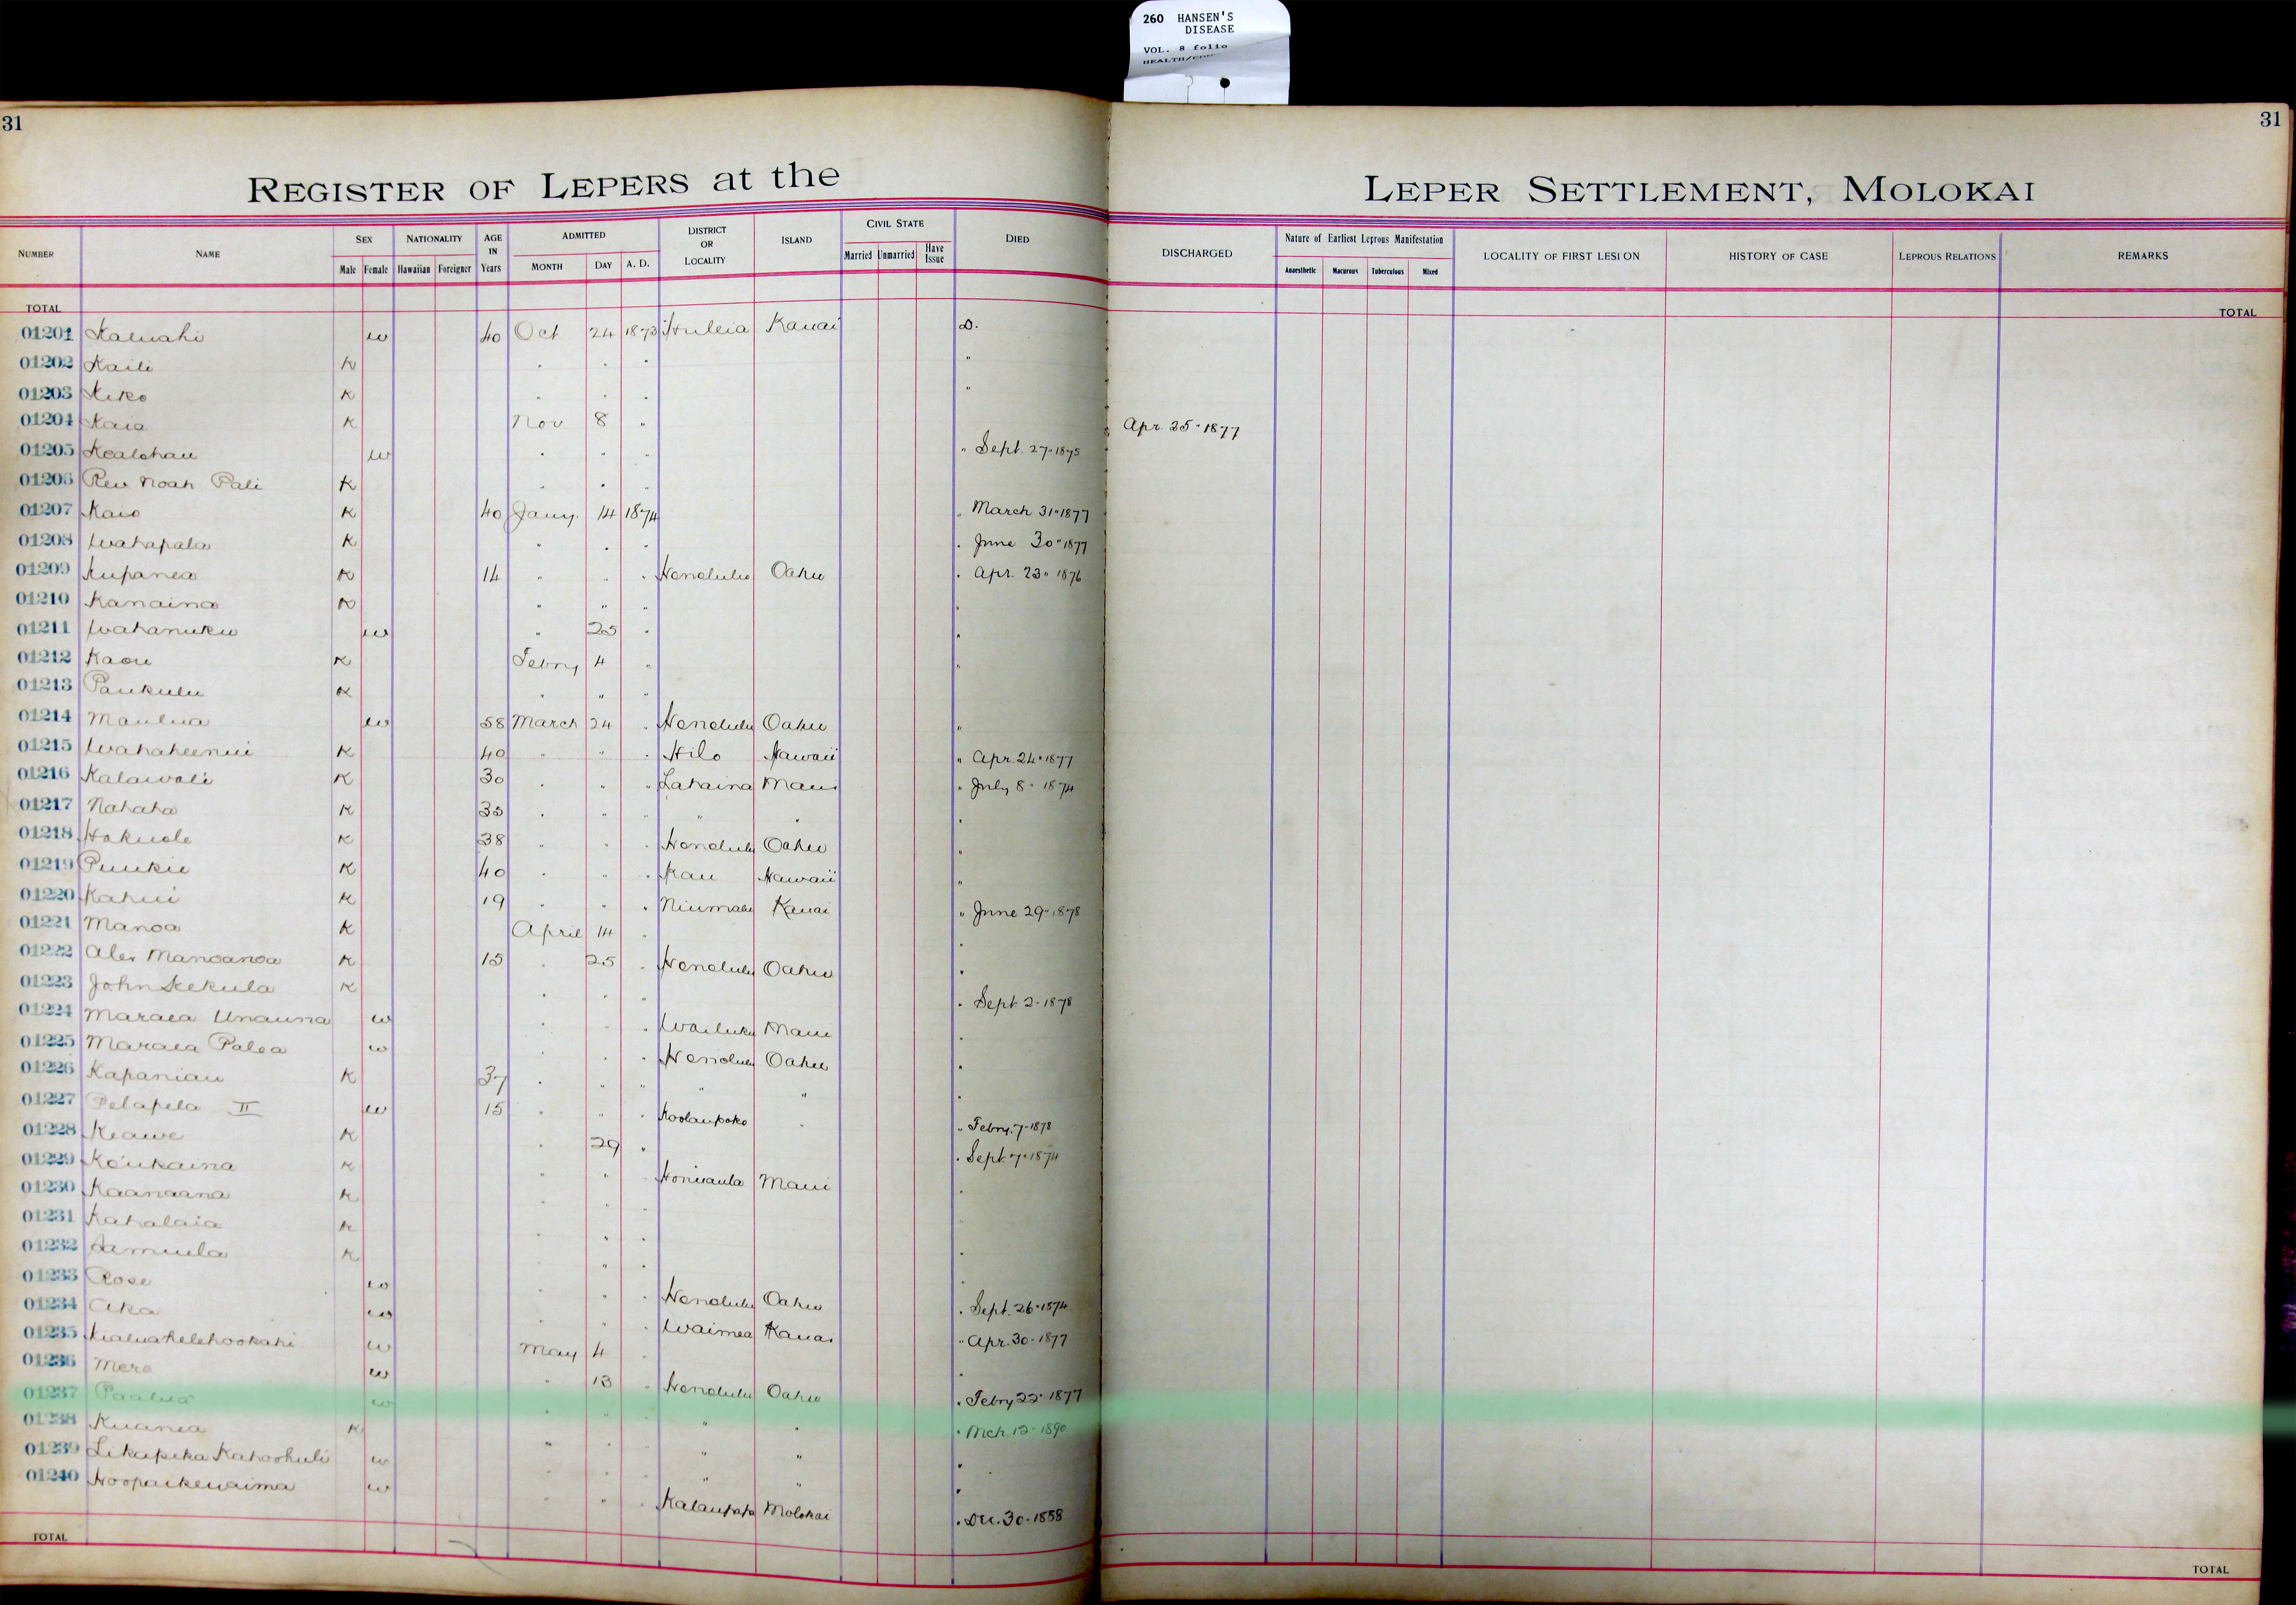 260 HANSEN'S
DISEASE
VOL. 8 folio
31
31
REGISTER OF LEPERS at the LEPER SETTLEMENT, MOLOKAI
NUMBER NAME SEX NATIONALITY AGE IN Years ADMITTED DISTRICT OR LOCALITY ISLAND CIVIL STATE DIED DISCHARGED Nature of Earliest Leprous Manifestation LOCALITY OF FIRST LESION HISTORY OF CASE LEPROUS RELATIONS REMARKS
Male Female Hawaiian Foreigner MONTH DAY A. D. Married Unmarried Have Issue Anaesthetic Macurous Tuberculous Mixed
TOTAL TOTAL
01201 Kaluahi w 40 Oct 24 1873 Huleia Kauai D.
01202 Kaili K " " " "
01203 Kiko K " " " "
01204 Kaia K Nov 8 " " Apr. 25" 1877
01205 Kealohau w " " " " Sept. 27" 1875
01206 Rev Noah Pali K " " "
01207 Kaio K 40 Jany. 14 1874 " March 31" 1877
01208 Wahapala K " " " " June 30" 1877
01209 Kupanea K 14 " " " Honolulu Oahu " Apr. 23" 1876
01210 Kanaina K " " " "
01211 Wahanuku w " 25 " "
01212 Kaou K Febry 4 " "
01213 Paukulu K " " "
01214 Maulua w 58 March 24 " Honolulu Oahu "
01215 Wahaheenui K 40 " " " Hilo Hawaii " Apr. 24" 1877
01216 Kalawali K 30 " " " Lahaina Maui " July 8" 1874
01217 Nahaha K 35 " " " " " "
01218 Hokuole K 38 " " " Honolulu Oahu "
01219 Puukii K 40 " " " Kau Hawaii "
01220 Kahui K 19 " " " Niumalu Kauai " June 29" 1878
01221 Manoa K April 14 " "
01222 Alex Manoanoa K 15 " 25 " Honolulu Oahu "
01223 John Kekula K " " " " Sept. 2" 1878
01224 Maraea Unauna w " " " Wailuku Maui "
01225 Maraea Palea w " " " Honolulu Oahu "
01226 Kapaniau K 37 " " " " " "
01227 Pelapela II w 15 " " " Koolaupoko " " Febry. 7" 1878
01228 Keawe K " 29 " " Sept. 7" 1874
01229 Koukaina K " " " Honuaula Maui "
01230 Kaanaana K " "
01231 Kahalaia K " " " "
01232 Samuela K " " "
01233 Rose w " " " Honolulu Oahu " Sept. 26" 1874
01234 Aka w " " " Waimea Kauai " Apr. 30" 1877
01235 Kialuahelehookahi w May 4 " "
01236 Mere w " 13 " Honolulu Oahu " Febry 22" 1877
01237 Paalua w " " " " " Mch. 12" 1890
01238 Kuanea K " " " " "
01239 Likapeka Kahoohuli w " " " " "
01240 Hoopaikewaima w " " " Kalaupapa Molokai " Dec. 30" 1888
TOTAL TOTAL